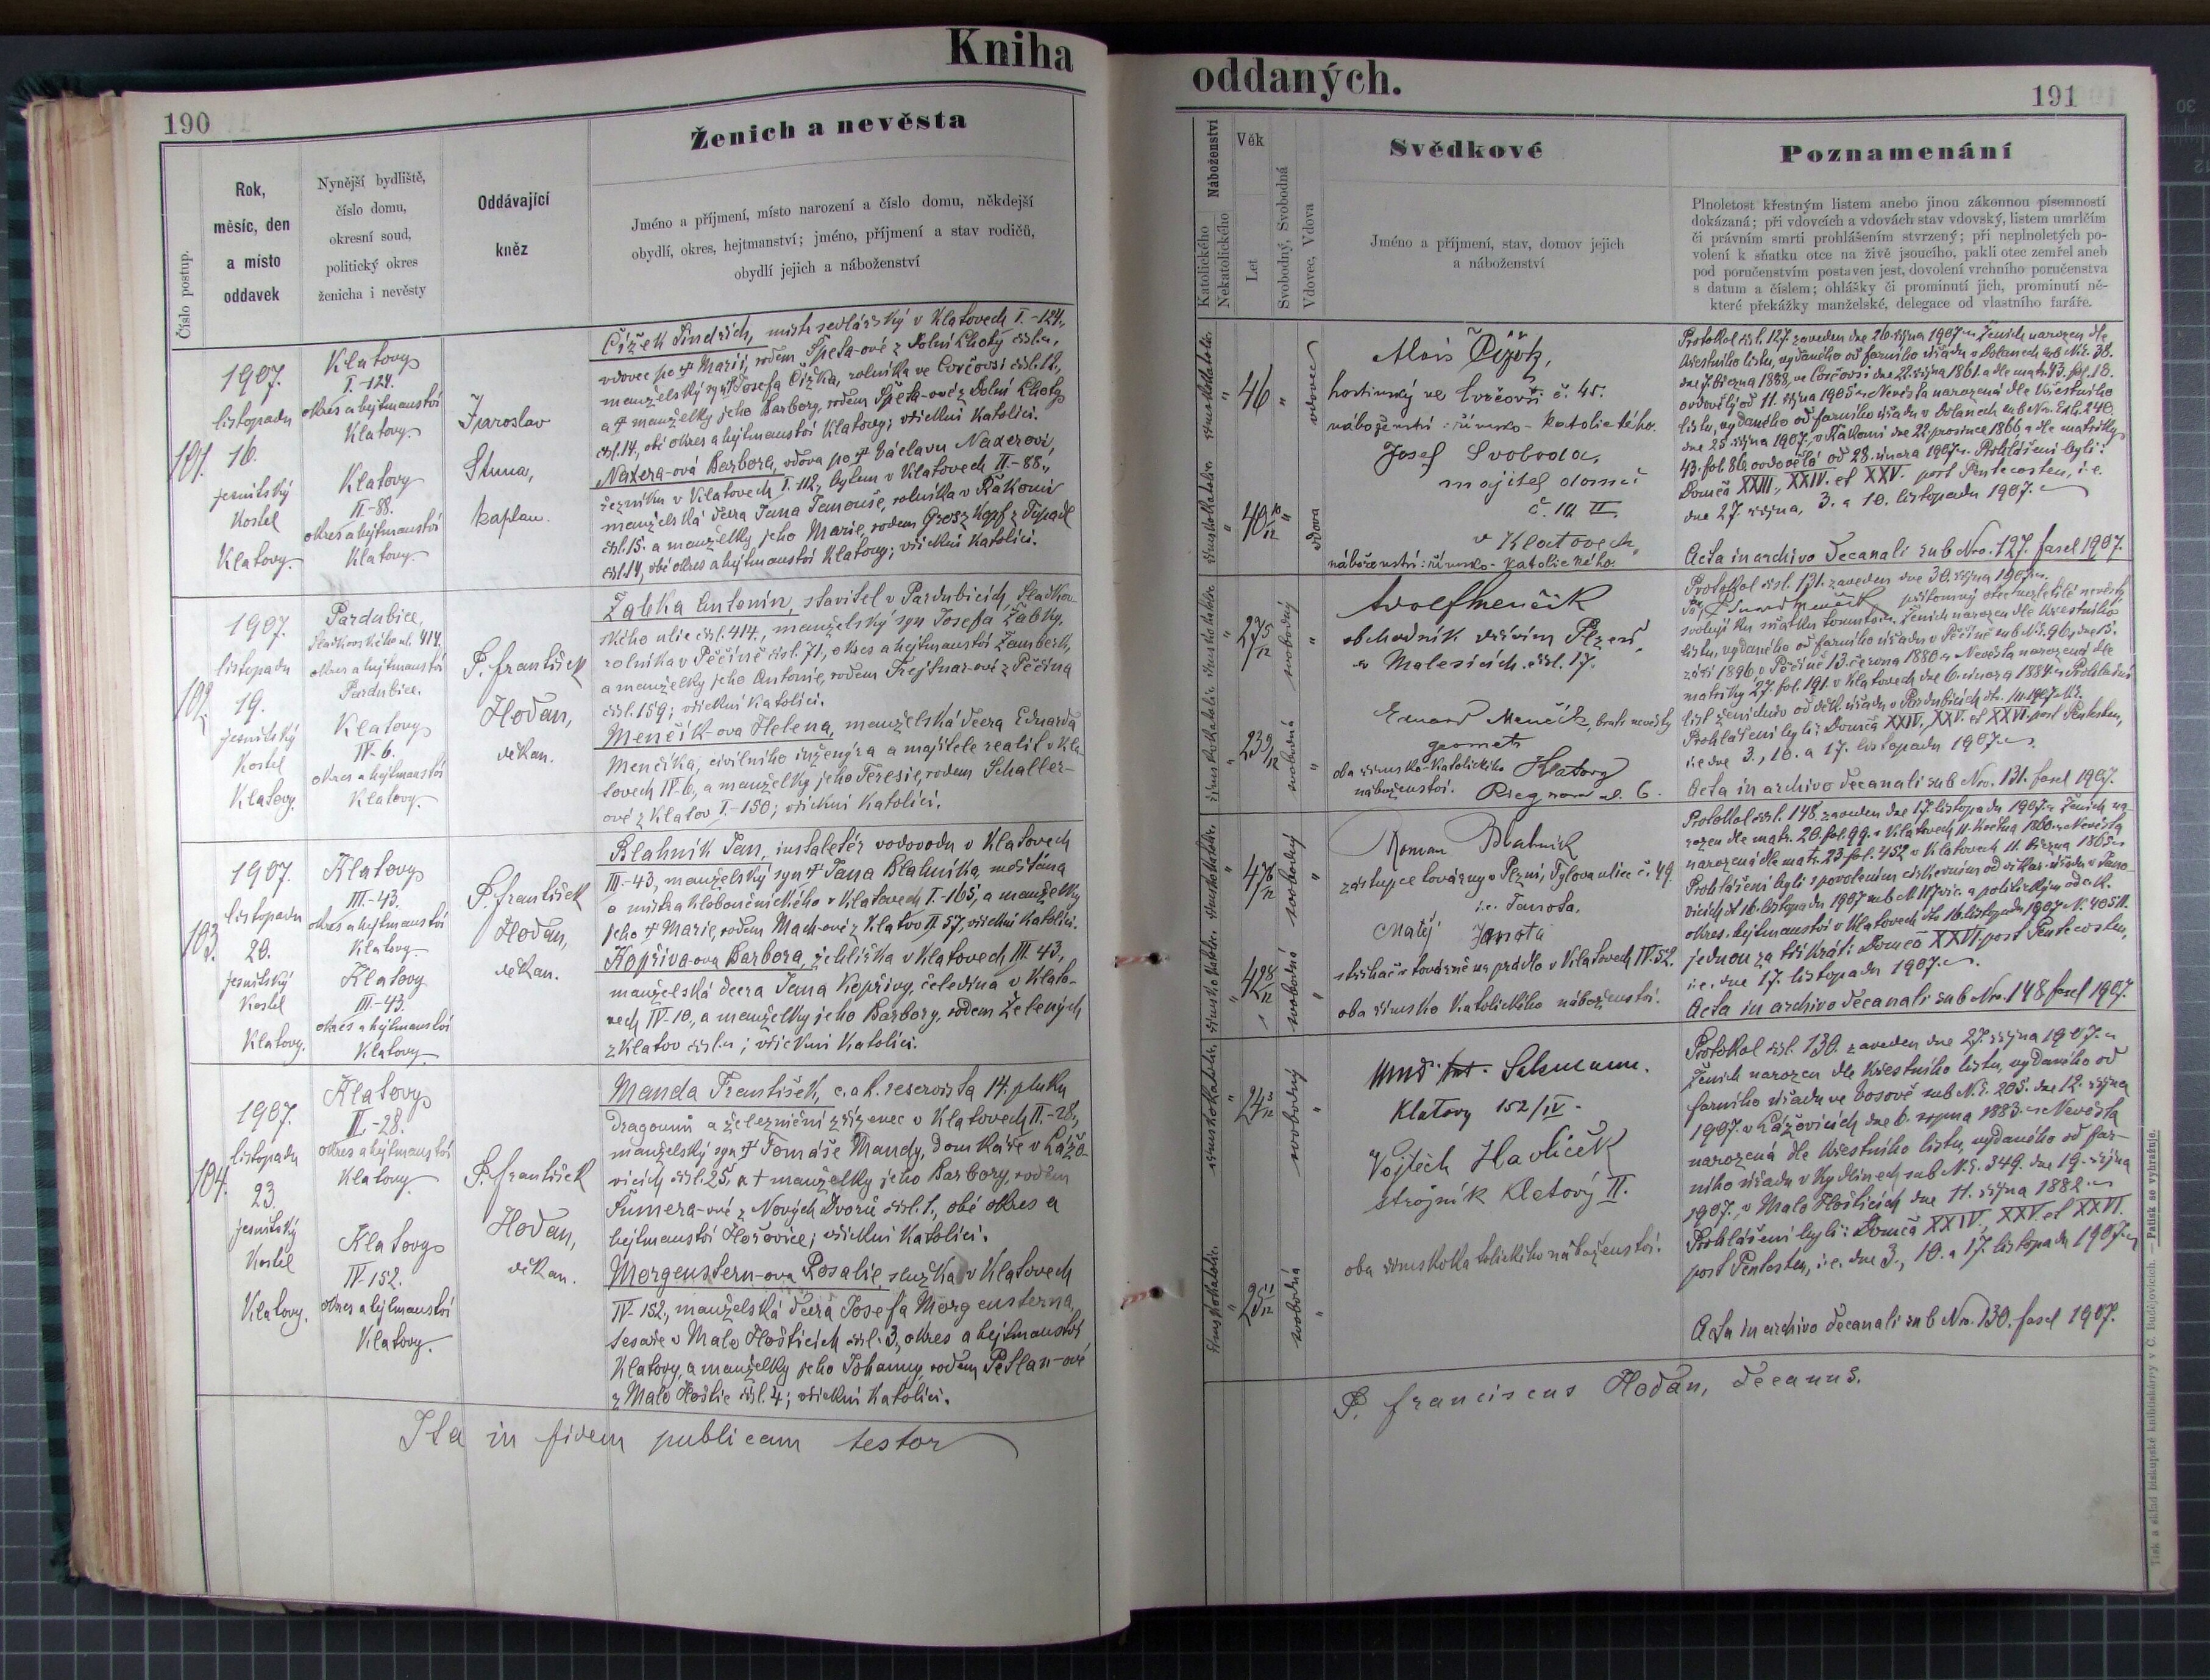 Kniha
190
Ženich a nevěsta
Číslo postup.
Rok,
měsíc, den
a místo
oddavek
Nynější bydliště,
číslo domu,
okresní soud,
politický okres
ženicha i nevěsty
Oddávající
kněz
Jméno a příjmení, místo narození a číslo domu, někdejší
obydlí, okres, hejtmanství; jméno, příjmení a stav rodičů,
obydlí jejich a náboženství
101.
1907.
listopadu
16.
jesuitský
Kostel
Klatovy.
Klatovy
I.-124.
okres a hejtmanství
Klatovy.
Klatovy
II.-88.
okres a hejtmanství
Klatovy.
Jaroslav
kaplan.
Čížek Jindřich, mistr sedlářský v Klatovech I.-124.,
vdovec po † Marii, rodem Špeta-ové z Dolní Lhoty
manželský syn † Josefa Čížka, rolníka ve
a † manželky jeho Barbory, rodem Špeta-ové z Dolní Lhoty
čsl. 14, obé okres a hejtmanství Klatovy; všichni katolíci.
Naxera-ová Barbora, vdova po † Václavu Naxerovi,
řezníku v Klatovech I.-112., bytem v Klatovech II.-88.,
manželská dcera Jana Janouše, rolníka v
čsl. 15. a manželky jeho Marie, rodem
čsl. 14, obé okres a hejtmanství Klatovy; všichni katolíci.
102.
1907.
listopadu
19.
jesuitský
Kostel
Klatovy.
Pardubice,
414.
okres a hejtmanství
Pardubice.
Klatovy
IV.-6.
okres a hejtmanství
Klatovy.
P. František
Hoďan,
děkan.
Žabka Antonín, stavitel v Pardubicích, Sladkov-
ského ulice čsl. 414., manželský syn Josefa Žabky,
rolníka v Pěčíně čsl. 71, okres a hejtmanství Žamberk,
a manželky jeho Antonie, rodem Frejtnar-ové z Pěčína
čsl. 159; všichni katolíci.
Menčík-ova Helena, manželská dcera Eduarda
Menčíka, civilního inženýra a majitele realit v Kla-
tovech IV.-6., a manželky jeho Teresie, rodem Schaller-
ové z Klatov I.-150; všichni katolíci.
103.
1907.
listopadu
20.
jesuitský
Kostel
Klatovy.
Klatovy
III.-43.
okres a hejtmanství
Klatovy.
Klatovy
III.-43.
okres a hejtmanství
Klatovy.
P. František
Hoďan,
děkan.
Blahník Jan, instaletér vodovodu v Klatovech
III.-43, manželský syn † Jana Blahníka, měšťana
a mistra kloboučnického v Klatovech I.-165, a manželky
jeho † Marie, rodem Mach-ové z Klatov II. 57, všichni katolíci.
Kopřiva-ova Barbora, žehlířka v Klatovech III. 43,
manželská dcera Jana Kopřivy, čeledína v Klato-
vech IV.-10., a manželky jeho Barbory, rodem Zelených
z Klatov čsl. ; všichni katolíci.
104.
1907.
listopadu
23.
jesuitský
Kostel
Klatovy.
Klatovy
II.-28.
okres a hejtmanství
Klatovy.
Klatovy
IV.-152.
okres a hejtmanství
Klatovy.
P. František
Hoďan,
děkan.
Manda František, c. a k. reservista 14. pluku
dragounů a železniční zřízenec v Klatovech II.-28.,
manželský syn † Tomáše Mandy, domkáře v Lážo-
vicích čsl. 25, a † manželky jeho Barbory, rodem
Šumera-ové z Nových Dvorů čsl. 1., obé okres a
hejtmanství Hořovice; všichni katolíci.
Morgenstern-ova Rosalie, služka v Klatovech
IV.-152., manželská dcera Josefa Morgensterna,
tesaře v Malo Hošticích čsl. 3, okres a hejtmanství
Klatovy, a manželky jeho Johanny, rodem Petlan-ové
z Malo Hoštic čsl. 4; všichni katolíci.
Ita in fidem publicam testor
oddaných.
191
Náboženství
Katolického
Nekatolického
Věk
Let
Svobodný, Svobodná
Vdovec, Vdova
Svědkové
Jméno a příjmení, stav, domov jejich
a náboženství
Poznamenání
Plnoletost křestným listem anebo jinou zákonnou písemností
dokázaná; při vdovcích a vdovách stav vdovský, listem umrlčím
či právním smrti prohlášením stvrzený; při neplnoletých po-
volení k sňatku otce na živě jsoucího, pakli otec zemřel aneb
pod poručenstvím postaven jest, dovolení vrchního poručenstva
s datum a číslem; ohlášky či prominutí jich, prominutí ně-
které překážky manželské, delegace od vlastního faráře.
římskokatolic.
46
vdovec
římskokatolic.
40 10/12
vdova
Alois Čížek,
hostinský ve č. 45.
náboženství: římsko-katolického.
Josef Svoboda,
majitel domu
č. 10 II.
v Klatovech,
náboženství: římsko-katolického.
Protokol čsl. 127. zaveden dne 26. října 1907. Ženich narozen dle
křestního listu, vydaného od farního úřadu v Dolanech sub Nr. 38.
dne 7. března 1888, ve dne 22. října 1861. a dle matr. 43. fol. 18.
ovdovělý od 11. října 1905. Nevěsta narozená dle křestního
listu, vydaného od farního úřadu v Dolanech sub Nr. 240.
dne 25. října 1907, v dne 22. prosince 1866 a dle matriky
43. fol. 86. ovdovělá od 28. února 1907. Prohlášeni byli:
Domca XXIII., XXIV. et XXV. post Pentecosten, i. e.
dne 27. října, 3. a 10. listopadu 1907.
Acta in archivo decanali sub Nro. 127. fascl 1907.
římskokatolic
27 5/12
svobodný
římskokatolic
23 9/12
svobodná
Adolf Menčík
obchodník dřívím Plzeň,
v Malesicích čsl. 17.
Eduard Menčík, bratr nevěsty
geometr
oba římsko-katolického Klatovy
náboženství. Riegrova ul. 6.
Protokol čsl. 131. zaveden dne 30. října 1907.
Já, Eduard Menčík, přítomný otec nezletilé nevěsty
svoluji ku sňatku tomuto. Ženich narozen dle křestního
listu, vydaného od farního úřadu v Pěčíně sub Nr. 96, dne 15.
září 1896, v Pěčíně 13. června 1880. Nevěsta narozená dle
matriky 27. fol. 191. v Klatovech dne 6. února 1884. Prohlašní
list ženichův od děk. úřadu v Pardubicích
Prohlášeni byli: Domca XXIV., XXV. et XXVI. post Pentecosten,
i. e. dne 3., 10. a 17. listopadu 1907.
Acta in archivo decanali sub Nro. 131. fascl 1907.
římskokatolic.
47 6/12
svobodný
římskokatolic.
42 8/12
svobodná
Roman Blahník
zástupce továrny v Plzni, Tylova ulice č. 49.
i. e. Janota.
Matěj Janota
strihač v továrně na prádlo v Klatovech IV. 52.
oba římsko katolického náboženství.
Protokol čsl. 148. zaveden dne 17. listopadu 1907. Ženich na-
rozen dle matr. 20. fol. 99. v Klatovech 11. května 1860. Nevěsta
narozená dle matr. 23. fol. 452 v Klatovech 11. března 1865.
Prohlášeni byli s povolením církevním od vikar. úřadu v Jano-
vicích dt. 16. listopadu 1907 sub a politickým od c. k.
okres. hejtmanství v Klatovech dto. 16. listopadu 1907
jednou za třikrát: Domca XXVI. post Pentecosten,
i. e. dne 17. listopadu 1907.
Acta in archivo decanali sub Nro. 148 fascl 1907.
římskokatolic.
24 3/12
svobodný
římskokatolic.
25 1/12
svobodná
Salzmann.
Klatovy 152/IV.
Vojtěch Havlíček
strojník Klatový II.
oba římskokatolického náboženství.
Protokol čsl. 130. zaveden dne 27. října 1907.
Ženich narozen dle křestního listu, vydaného od
farního úřadu ve Vosově sub N. E. 205. dne 12. října
1907. v Lážovicích dne 6. srpna 1883. Nevěsta
narozená dle křestního listu, vydaného od far-
ního úřadu v Kydlinech sub N. E. 349. dne 19. října
1907., v Malo Hošticích dne 11. října 1882.
Prohlášeni byli: Domca XXIV., XXV. et XXVI.
post Pentcsten, i. e. dne 3., 10. a 17. listopadu 1907.
Acta in archivo decanali sub Nro. 130. fascl 1907.
P. Franciscus Hoďan, decanus.
Tisk a sklad biskupské knihtiskárny v Č. Budějovicích. — Patisk se vyhražuje.